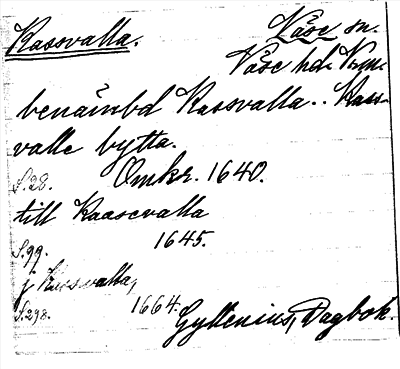 Kassvalla.
Väse sn.
Väse hd. Vrml.
benämbd Kassvalla .. Kass-
valle bytta.
S. 28. Omkr. 1640.
till Kaasevalla
1645.
S. 99.
j Kassvalla,
1664.
S. 298.
Gyllenius, Dagbok.